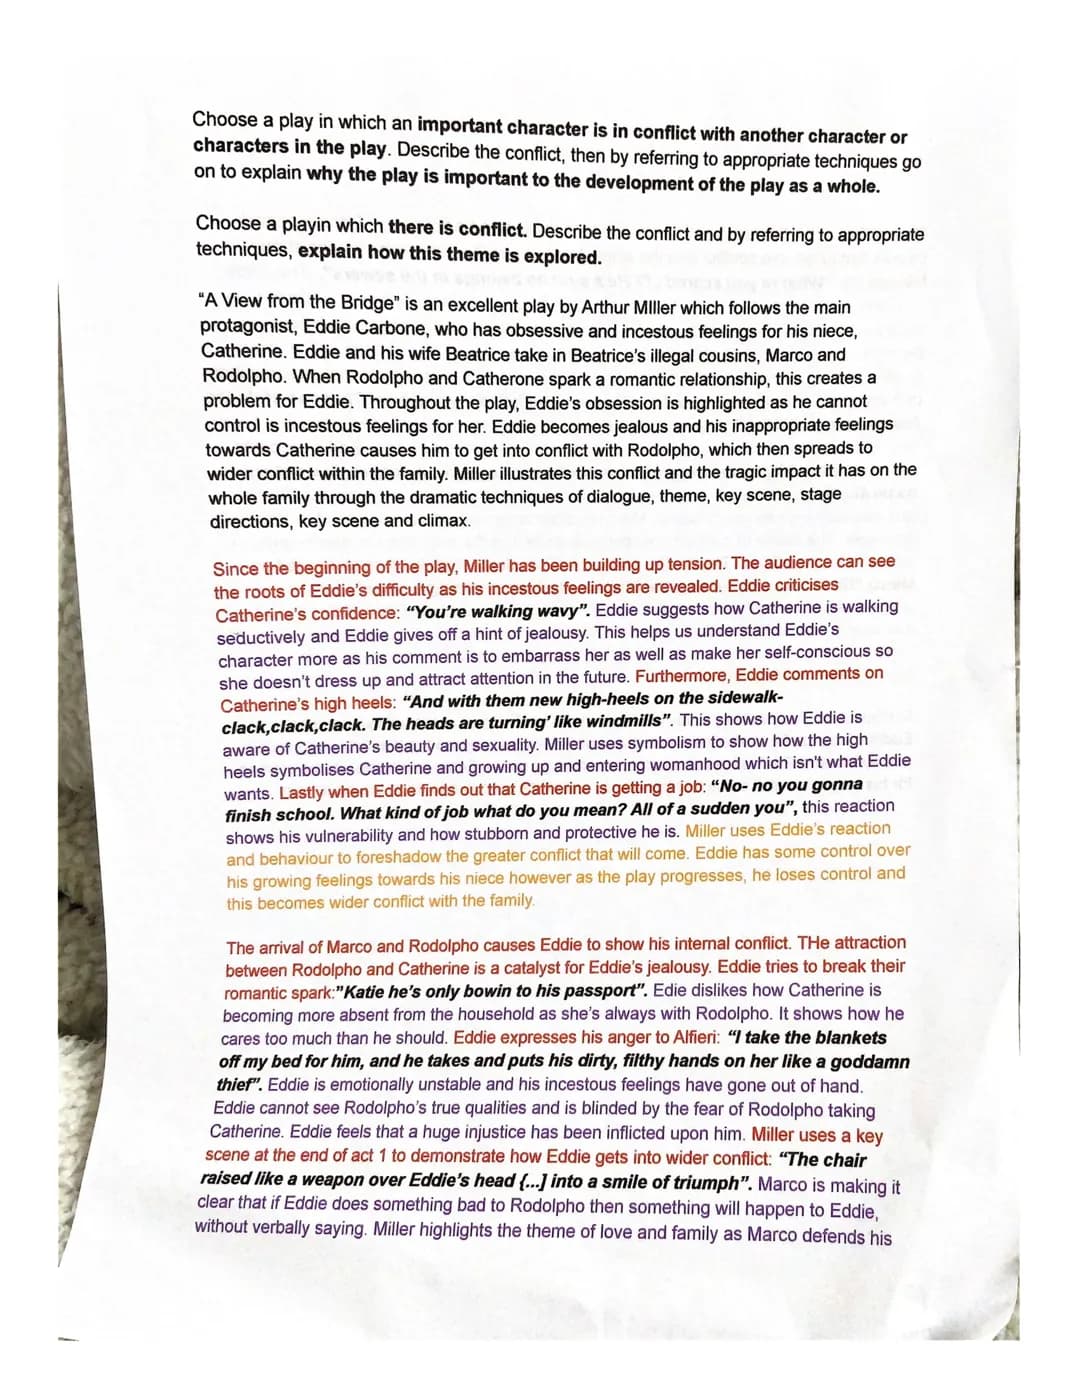 Choose a play in which an important character is in conflict with another character or
characters in the play. Describe the conflict, then by referring to appropriate techniques go
on to explain why the play is important to the development of the play as a whole.
Choose a playin which there is conflict. Describe the conflict and by referring to appropriate
techniques, explain how this theme is explored.
“A View from the Bridge” is an excellent play by Arthur MIller which follows the main
protagonist, Eddie Carbone, who has obsessive and incestous feelings for his niece,
Catherine. Eddie and his wife Beatrice take in Beatrice's illegal cousins, Marco and
Rodolpho. When Rodolpho and Catherone spark a romantic relationship, this creates a
problem for Eddie. Throughout the play, Eddie's obsession is highlighted as he cannot
control is incestous feelings for her. Eddie becomes jealous and his inappropriate feelings
towards Catherine causes him to get into conflict with Rodolpho, which then spreads to
wider conflict within the family. Miller illustrates this conflict and the tragic impact it has on the
whole family through the dramatic techniques of dialogue, theme, key scene, stage
directions, key scene and climax.
Since the beginning of the play, Miller has been building up tension. The audience can see
the roots of Eddie's difficulty as his incestous feelings are revealed. Eddie criticises
Catherine's confidence: “You're walking wavy”. Eddie suggests how Catherine is walking
seductively and Eddie gives off a hint of jealousy. This helps us understand Eddie's
character more as his comment is to embarrass her as well as make her self-conscious so
she doesn't dress up and attract attention in the future. Furthermore, Eddie comments on
Catherine's high heels: “And with them new high-heels on the sidewalk-
clack,clack,clack. The heads are turning' like windmills”. This shows how Eddie is
aware of Catherine's beauty and sexuality. Miller uses symbolism to show how the high
heels symbolises Catherine and growing up and entering womanhood which isn't what Eddie
wants. Lastly when Eddie finds out that Catherine is getting a job: “No- no you gonna
finish school. What kind of job what do you mean? All of a sudden you”, this reaction
shows his vulnerability and how stubborn and protective he is. Miller uses Eddie's reaction
and behaviour to foreshadow the greater conflict that will come. Eddie has some control over
his growing feelings towards his niece however as the play progresses, he loses control and
this becomes wider conflict with the family.
The arrival of Marco and Rodolpho causes Eddie to show his internal conflict. THe attraction
between Rodolpho and Catherine is a catalyst for Eddie's jealousy. Eddie tries to break their
romantic spark:"Katie he's only bowin to his passport”. Edie dislikes how Catherine is
becoming more absent from the household as she's always with Rodolpho. It shows how he
cares too much than he should. Eddie expresses his anger to Alfieri: “I take the blankets
off my bed for him, and he takes and puts his dirty, filthy hands on her like a goddamn
thief”. Eddie is emotionally unstable and his incestous feelings have gone out of hand.
Eddie cannot see Rodolpho's true qualities and is blinded by the fear of Rodolpho taking
Catherine. Eddie feels that a huge injustice has been inflicted upon him. Miller uses a key
scene at the end of act 1 to demonstrate how Eddie gets into wider conflict: “The chair
raised like a weapon over Eddie's head {...] into a smile of triumph”. Marco is making it
clear that if Eddie does something bad to Rodolpho then something will happen to Eddie,
without verbally saying. Miller highlights the theme of love and family as Marco defends his